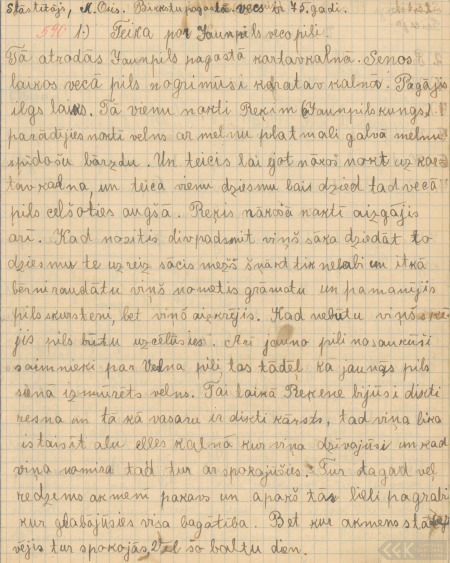 Stāstījis, K. Ozis. Birkstu pagastā vecs ir 75. gadi.
590 1.) Teika par Jaunpils veco pili.
Tā atrodās Jaunpils pagastā kartavkalnā. Senos
laikos vecā pils nogrimusi karatavkalnā. Pagājis
ilgs laiks. Tā vienu nakti Rekim (Jaunpilskungs)
parādījies naktī velns ar melnu platmali galvā melnu
spīdošu bārzdu. Un teicis lai ejot nākoš nakt uz kar
tavkalna, un teica vienu dziesmu lais dzied tad vecā
pils celšoties augšā. Rekis nākošā naktī aizgājis
arī. Kad nositis divpadsmit viņš sāka dziedāt to
dziesmu te uzreiz sācis mežs šņākt tik nelabi un itkā
berni raudātu viņš nometis grāmatu un pamanījis
pilskursteni, bet viņš aizkrējis. Kad nebutu viņš skrē
jis pils būtu uzcēlusies. Arī jauno pili nosaukuši
saimnieki par Velna pili, tas tādēļ ka jaunājs pils
sienā izmūrēts velns. Tai laikā Rekene bijusi dikti
resna un tā kā vasaru ir dikti kārsts, tad viņa lika
istaisīt alu elles kalnā kur viņa dzīvājusi un kad
viņa nomira tad tur ar spokojušies. Tur tagad vēl
redzams akmeni pakavs un apakš tas lieli pagrabi
kur glabājusies visa bagātība. Bet kur akmens stā
vējis tur spokojās vēl šo baltu dien.